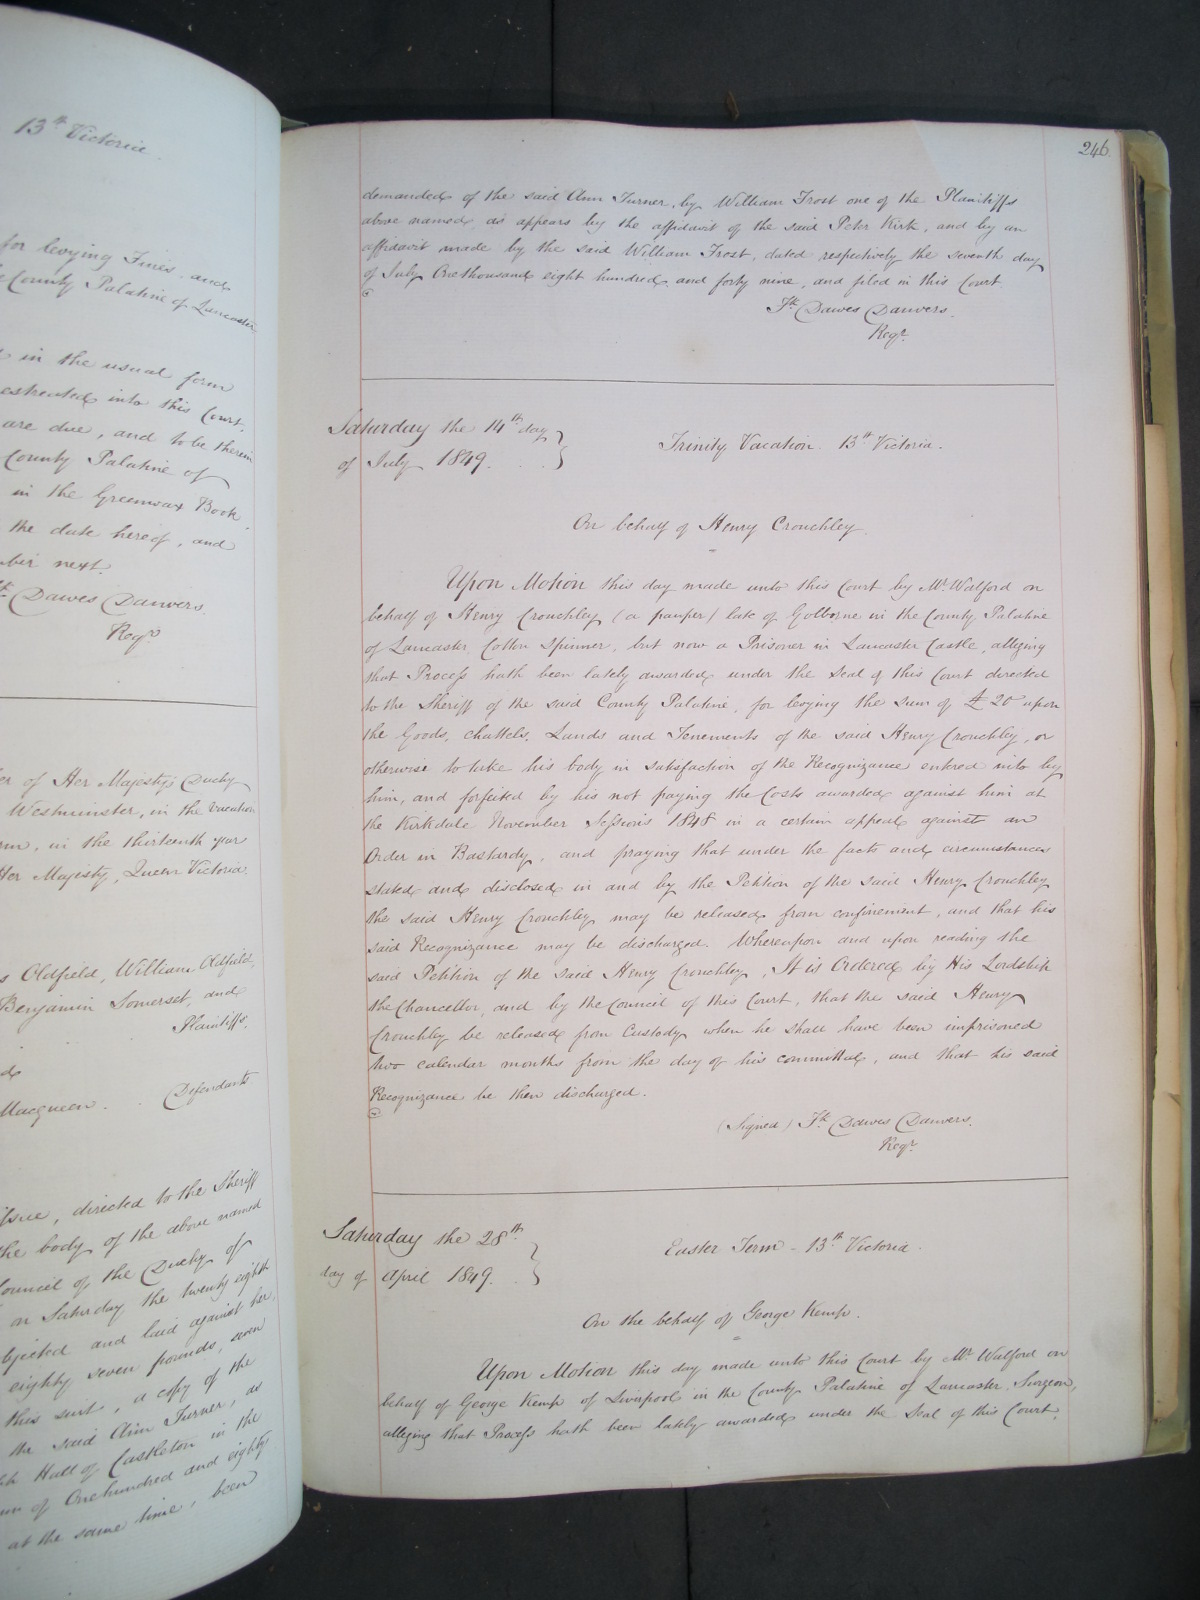 13th Victoria.
for levying Fines. and
County Palatine of Lancaster
in the usual form
estreated into this Court,
are due, and to be therein
County Palatine of
in the Greenwax Book
the date hereof, and
next.
Dawes Danvers.
Regr
of Her Majesty's Duchy
Westminster, in the Vacation
in the thirteenth year
Her Majesty, Queen Victoria.
Oldfield, William Oldfield,
Benjamin Somerset, and
Plaintiffs.
Macqueen. Defendants
directed to the Sheriff
the body of the above named
Council of the Duchy of
on Saturday the twenty eighth
objected and laid against her
eighty seven pounds, seven
this suit, a copy of the
the said Ann Turner, as
Hall of Castleton in the
of One hundred and eighty
at the same time, been
246
demanded of the said Ann Turner, by William Frost one of the Plaintiffs
above named, as appears by the affidavit of the said Peter Kirk, and by an
affidavit made by the said William Frost, dated respectively the seventh day
of July One thousand eight hundred and forty nine, and filed in this Court.
Fk Dawes Danvers.
Regr.
Saturday the 14th day
of July 1849.
Trinity Vacation. 13th Victoria.
On behalf of Henry Crouchley.
Upon Motion this day made unto this Court by Mr Walford on
behalf of Henry Crouchley (a pauper) late of Golborne in the County Palatine
of Lancaster, Cotton Spinner, but now a Prisoner in Lancaster Castle, alleging
that Process hath been lately awarded, under the Seal of this Court directed
to the Sheriff of the said County Palatine, for levying the Sum of £20 upon
the Goods, chattels, Lands and Tenements of the said Henry Crouchley, or
otherwise to take his body in satisfaction of the Recognizance entered into by
him, and forfeited by his not paying the Costs awarded against him at
the Kirkdale November Sessions 1848 in a certain appeal against an
Order in Bastardy, and praying that under the facts and circumstances
stated and disclosed in and by the Petition of the said Henry Crouchley
the said Henry Crouchley may be released from confinement, and that his
said Recognizance may be discharged. Whereupon and upon reading the
said Petition of the said Henry Crouchley, It is Ordered by His Lordship
the Chancellor, and by the Council of this Court, that the said Henry
Crouchley be released from Custody when he shall have been imprisoned
two calendar months from the day of his committal, and that his said
Recognizance be then discharged.
(Signed) Fk Dawes Danvers.
Regr.
Saturday the 28th
day of April 1849.
Easter Term - 13th Victoria.
On the behalf of George Kemp.
Upon Motion this day made unto this Court by Mr Walford on
behalf of George Kemp of Liverpool in the County Palatine of Lancaster, Surgeon,
alleging that Process hath been lately awarded under the Seal of this Court,